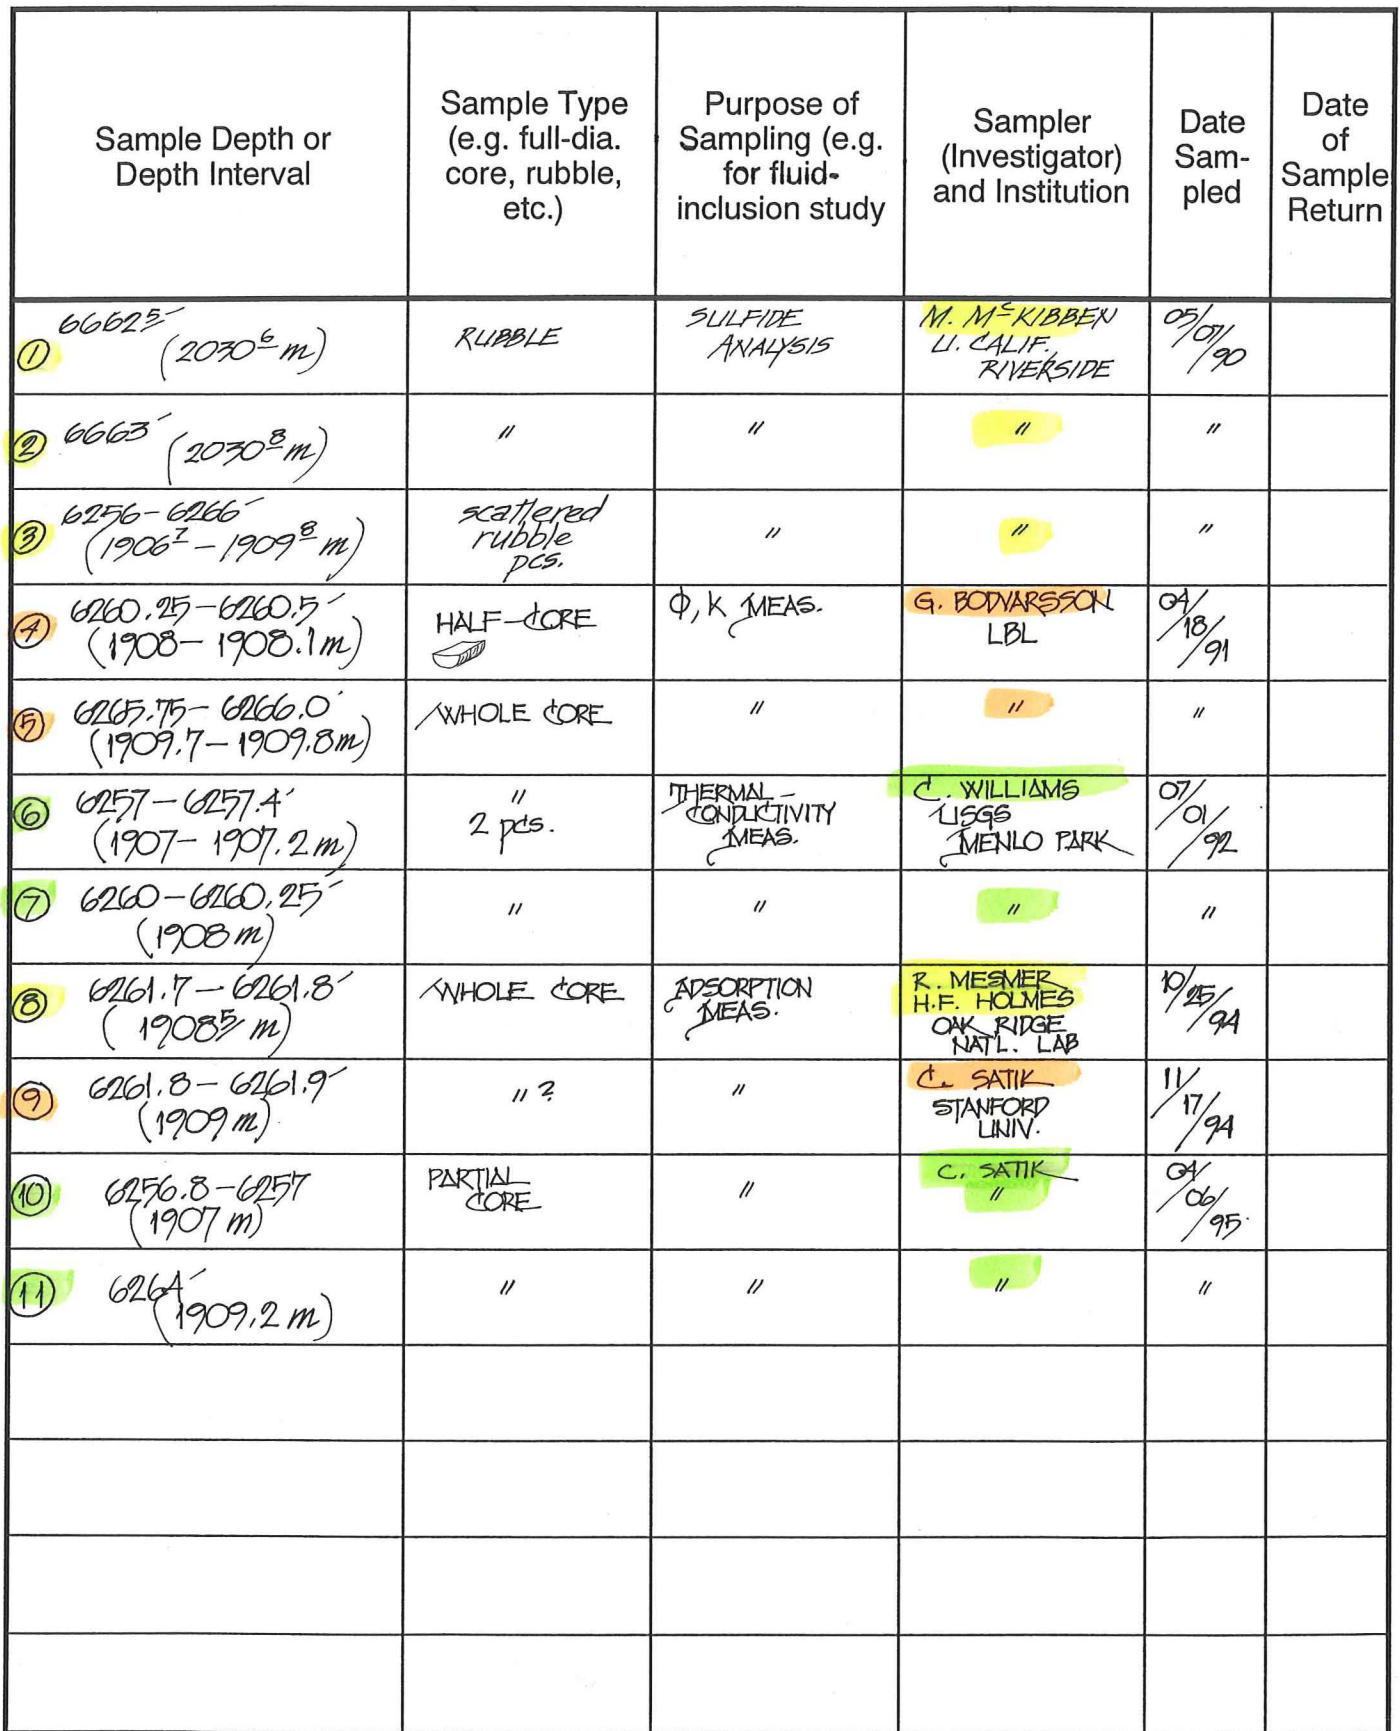 Sample Depth or
Depth Interval
Sample Type
(e.g. full-dia.
core, rubble,
etc.)
Purpose of
Sampling (e.g.
for fluid-
inclusion study
Sampler
(Investigator)
and Institution
Date
Sam-
pled
Date
of
Sample
Return
① 6662⁵′
(2030⁶ m)
RUBBLE
SULFIDE
ANALYSIS
M. McKIBBEN
U. CALIF.
RIVERSIDE
05/
07/
90
② 6663′
(2030⁸ m)
"
"
"
"
③ 6256-6266′
(1906⁷ - 1909⁸ m)
scattered
rubble
pcs.
"
"
"
④ 6260.25-6260.5′
(1908-1908.1m)
HALF-CORE
Φ, K MEAS.
G. BODVARSSON
LBL
04/
18/
91
⑤ 6265.75-6266.0′
(1909.7-1909.8m)
WHOLE CORE
"
"
"
⑥ 6257-6257.4′
(1907-1907.2m)
"
2 pcs.
THERMAL-
CONDUCTIVITY
MEAS.
C. WILLIAMS
USGS
MENLO PARK
07/
01/
92
⑦ 6260-6260.25′
(1908 m)
"
"
"
"
⑧ 6261.7-6261.8′
(1908⁵ m)
WHOLE CORE
ADSORPTION
MEAS.
R. MESMER
H.F. HOLMES
OAK RIDGE
NAT'L. LAB
10/
25/
94
⑨ 6261.8-6261.9′
(1909 m)
" ?
"
C. SATIK
STANFORD
UNIV.
11/
17/
94
⑩ 6256.8-6257
(1907 m)
PARTIAL
CORE
"
C. SATIK
"
04/
06/
95
⑪ 6264′
(1909.2 m)
"
"
"
"